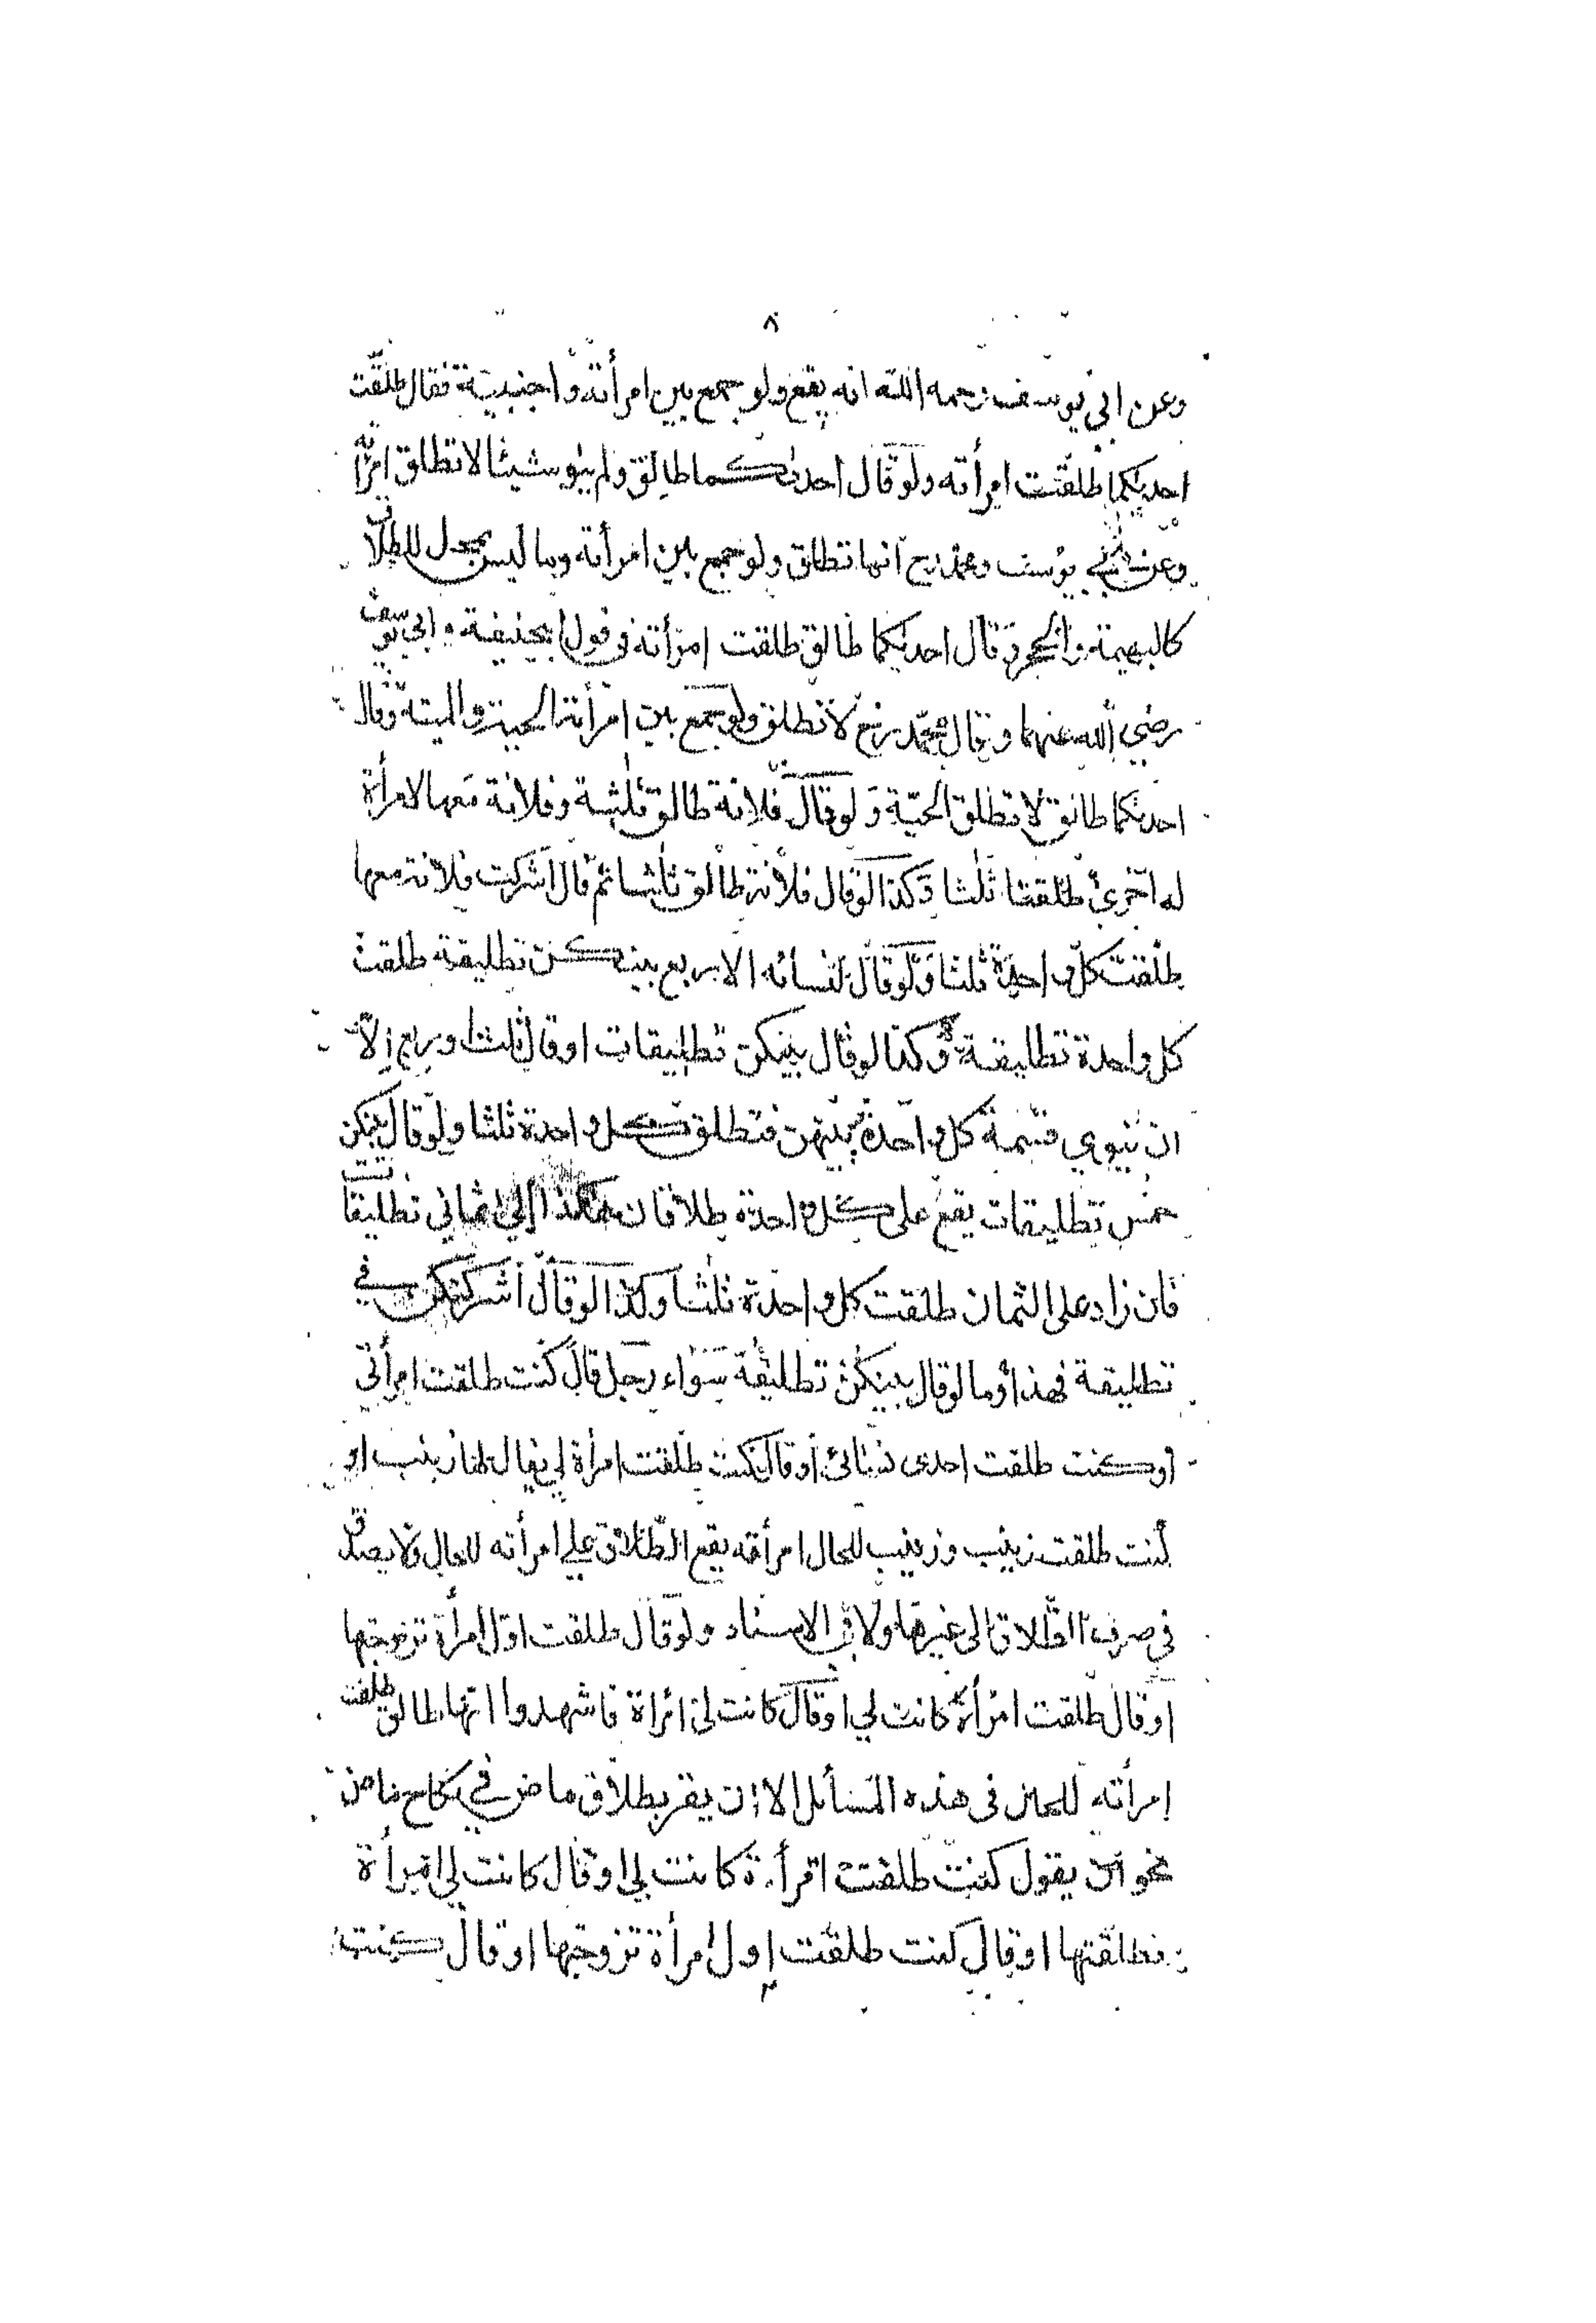 ٨
وعن ابي يوسف رحمه الله انه يقع ولو جمع بين امرأته واجنبية فقال طلقت
احديكما طلقت امرأته ولو قال احديكما طالق ولم ينو شيئا لا تطلق امرأته
وعن ابي يوسف ومحمد رح انها تطلق ولو جمع بين امرأته وما ليس بمحل للطلاق
كالبهيمة والحجر وقال احديكما طالق طلقت امرأته في قول ابيحنيفة وابي يوسف
رضي الله عنهما وقال محمد رح لا تطلق ولو جمع بين امرأته الحية والميتة وقال
احديكما طالق لا تطلق الحية ولو قال فلانة طالق ثلثة وفلانة معها لامرأة
له اخرى طلقتا ثلثا وكذا لو قال فلانة طالق ثلثا ثم قال اشركت فلانة معها
طلقت كل واحدة ثلثا ولو قال لنسائه الاربع بينكن تطليقة طلقت
كل واحدة تطليقة وكذا لو قال بينكن تطليقات او قال ثلث او ربع الا
ان ينوي قسمة كل واحدة بينهن فتطلق كل واحدة ثلثا ولو قال بينكن
خمس تطليقات يقع على كل واحدة طلاقان هكذا الى ثماني تطليقات
فان زاد على الثمان طلقت كل واحدة ثلثا وكذا لو قال اشركتكن في
تطليقة فهذا وما لو قال بينكن تطليقة سواء رجل قال كنت طلقت امرأتي
او كنت طلقت احدى نسائي او قال كنت طلقت امرأة لي يقال لها زينب او
كنت طلقت زينب وزينب للحال امرأته يقع الطلاق على امرأته للحال ولا يصدق
في صرف الطلاق الى غيرها ولا في الاسناد ولو قال طلقت اول امرأة تزوجتها
او قال طلقت امرأة كانت لي او قال كانت لي امرأة فاشهدوا انها طالق طلقت
امرأته للحال في هذه المسائل الا ان يقر بطلاق ماض في نكاح ماض
نحو ان يقول كنت طلقت امرأة كانت لي او قال كانت لي امرأة
فطلقتها او قال كنت طلقت اول امرأة تزوجتها او قال كنت